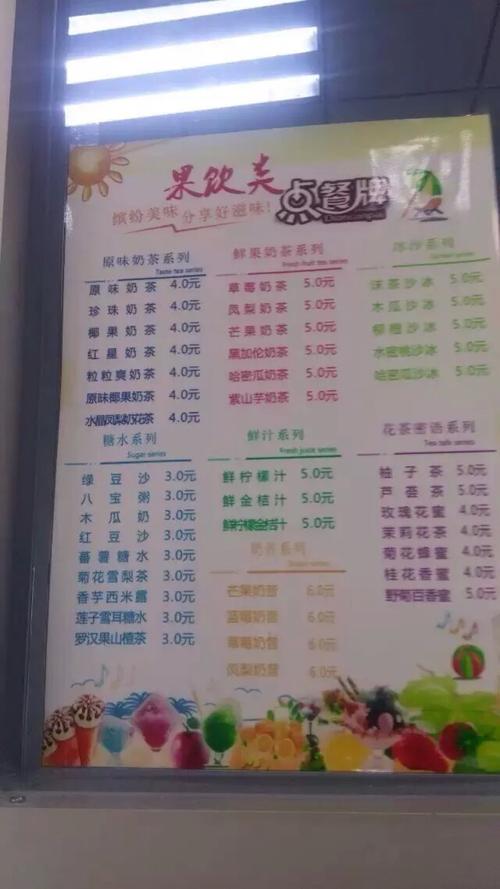 果饮类
点餐牌
缤纷美味 分享好滋味!
原味奶茶系列
Taste tea series
原味奶茶 4.0元
珍珠奶茶 4.0元
椰果奶茶 4.0元
红星奶茶 4.0元
粒粒爽奶茶 4.0元
原味椰果奶茶 4.0元
水晶凤梨奶花茶 4.0元
鲜果奶茶系列
Fresh fruit tea series
草莓奶茶 5.0元
凤梨奶茶 5.0元
芒果奶茶 5.0元
黑加伦奶茶 5.0元
哈密瓜奶茶 5.0元
紫山芋奶茶 5.0元
冰沙系列
抹茶沙冰 5.0元
木瓜沙冰 5.0元
柳橙沙冰 5.0元
水密桃沙冰 5.0元
哈密瓜沙冰 5.0元
糖水系列
Sugar series
绿豆沙 3.0元
八宝粥 3.0元
木瓜奶 3.0元
红豆沙 3.0元
蕃薯糖水 3.0元
菊花雪梨茶 3.0元
香芋西米露 3.0元
莲子雪耳糖水 3.0元
罗汉果山楂茶 3.0元
鲜汁系列
Fresh juice series
鲜柠檬汁 5.0元
鲜金桔汁 5.0元
鲜柠檬金桔汁 5.0元
奶昔系列
芒果奶昔 6.0元
蓝莓奶昔 6.0元
草莓奶昔 6.0元
凤梨奶昔 6.0元
花茶密语系列
Tea talk series
柚子茶 5.0元
芦荟茶 5.0元
玫瑰花蜜 4.0元
茉莉花茶 4.0元
菊花蜂蜜 4.0元
桂花香蜜 4.0元
野菊百香蜜 5.0元